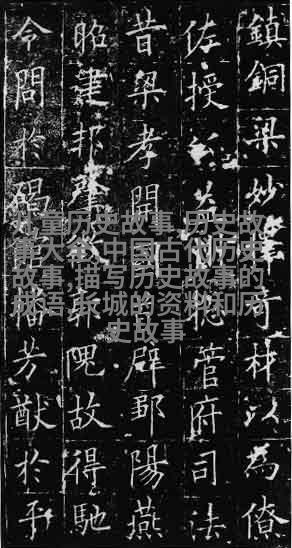 鎮銅梁妙擇奇材以為僚
佐授公益州揔管府司法
昔梁孝開國首辟鄒陽燕
昭建邦肇徵郭隗故得馳
令問於碣館播芳猷於平
儿童历史故事,历史故
事大全,中国古代历史
故事,描写历史故事的
成语,长城的资料和历
史故事